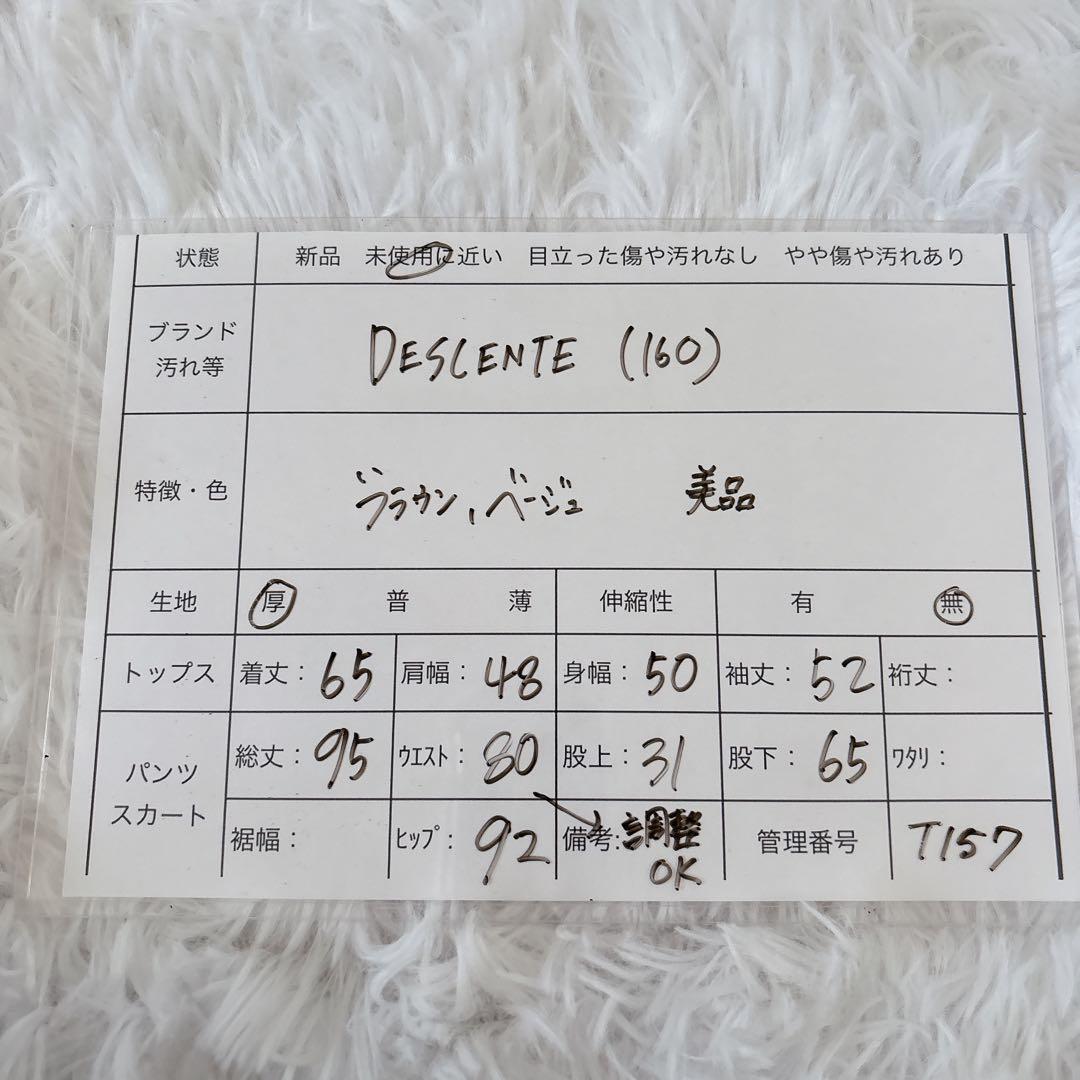 状態 新品 未使用に近い 目立った傷や汚れなし やや傷や汚れあり
ブランド
汚れ等
DESCENTE (160)
特徴・色 ブラウン、ベージュ 美品
生地 厚 普 薄 伸縮性 有 無
トップス 着丈：65 肩幅：48 身幅：50 袖丈：52 裄丈：
パンツ
スカート
総丈：95 ｳｴｽﾄ：80 股上：31 股下：65 ﾜﾀﾘ：
裾幅： ﾋｯﾌﾟ：92 備考:調整 管理番号 T157
OK